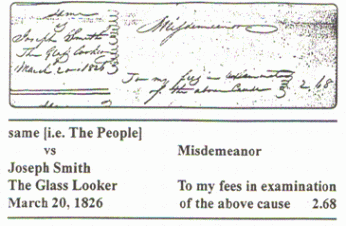 same
vs
Joseph Smith
The Glass Looker
March 20, 1826
Misdemeanor
To my fees in examination
of the above cause 2.68
same [i.e. The People]
vs
Joseph Smith
The Glass Looker
March 20, 1826
Misdemeanor
To my fees in examination
of the above cause 2.68